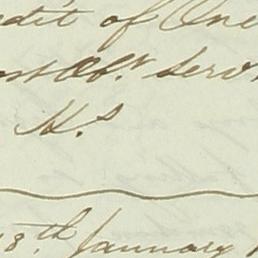 edit of One
most Obt. Serv
H.s
18th January